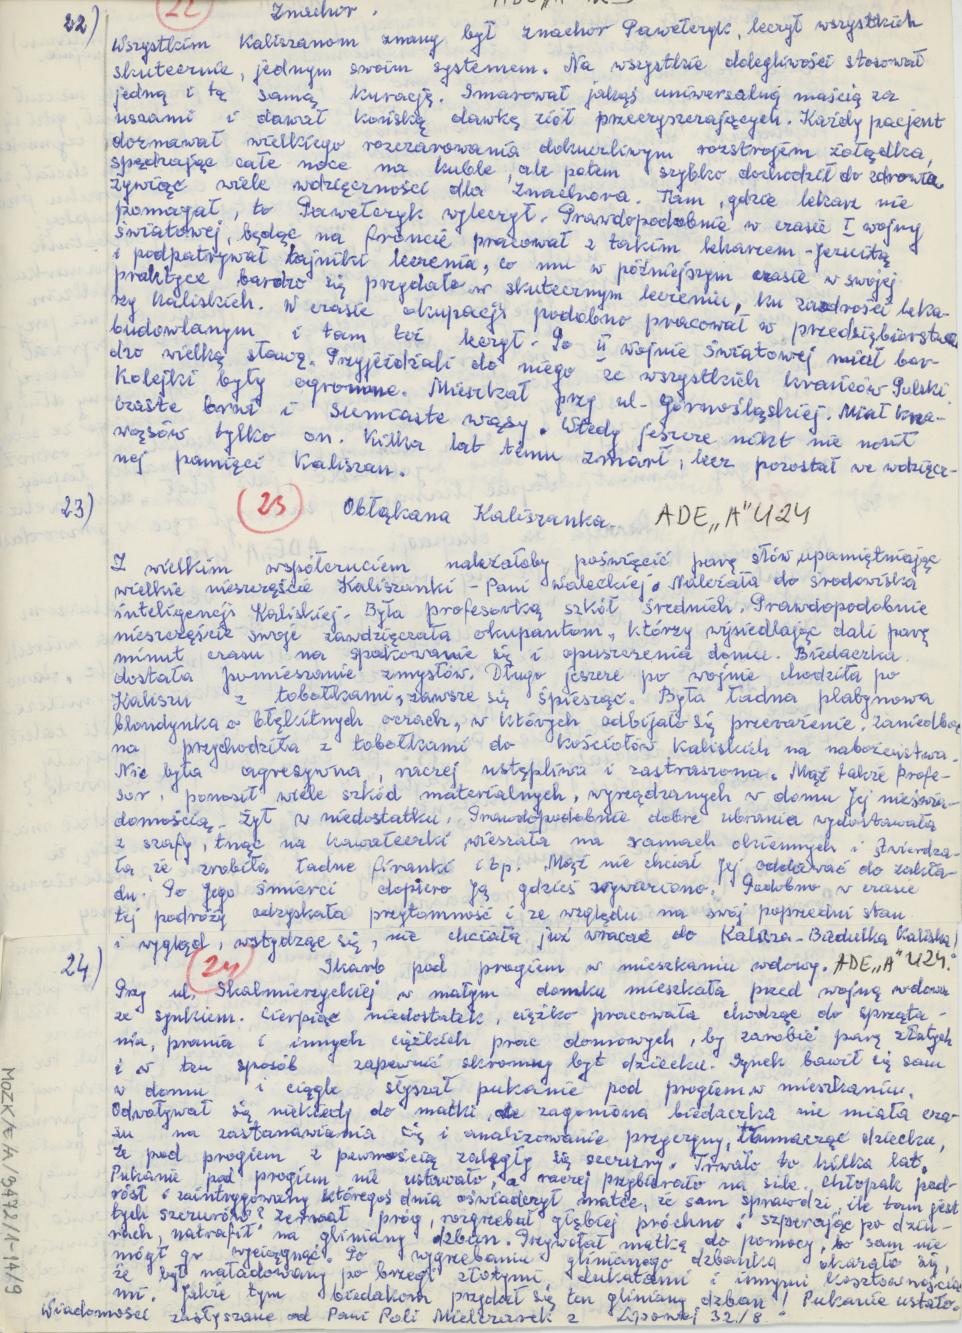 22) 22 Znachor.
Wszystkim Kaliszanom znany był znachor Pawełczyk, leczył wszystkich
skutecznie, jednym swoim systemem. Na wszystkie dolegliwości stosował
jedną i tą samą kurację. Smarował jakąś uniwersalną maścią za
uszami i dawał końską dawkę ziół przeczyszczających. Każdy pacjent
doznawał wielkiego rozczarowania dokuczliwym rozstrojem żołądka,
spędzając całe noce na kuble, ale potem szybko dochodził do zdrowia
żywiąc wiele wdzięczności dla Znachora. Tam, gdzie lekarz nie
pomagał, to Pawełczyk wyleczył. Prawdopodobnie w czasie I wojny
światowej, będąc na froncie pracował z takim lekarzem - Jezuitą
i podpatrywał tajniki leczenia, co mu w późniejszym czasie w swojej
praktyce bardzo się przydało w skutecznym leczeniu, ku zazdrości leka-
rzy Kaliskich. W czasie okupacji podobno pracował w przedsiębiorstwie
budowlanym i tam też leczył. Po II wojnie światowej miał bar-
dzo wielką sławę. Przyjeżdżali do niego ze wszystkich krańców Polski.
Kolejki były ogromne. Mieszkał przy ul. Górnośląskiej. Miał krza-
czaste brwi i sumiaste wąsy. Wtedy jeszcze nikt nie nosił
wąsów tylko on. Kilka lat temu zmarł, lecz pozostał we wdzięcz-
nej pamięci Kaliszan.
23) 23 Obłąkana Kaliszanka. ADE „A" U24
Z wielkim współczuciem należałoby poświęcić parę słów, upamiętniając
wielkie nieszczęście Kaliszanki - Pani Waleckiej. Należała do środowiska
inteligencji Kaliskiej. Była profesorką szkół średnich. Prawdopodobnie
nieszczęście swoje zawdzięczała okupantom, którzy wysiedlając dali parę
minut czasu na spakowanie się i opuszczenie domu. Biedaczka
dostała pomieszanie zmysłów. Długo jeszcze po wojnie chodziła po
Kaliszu z tobołkami, zawsze się śpiesząc. Była ładna platynowa
blondynka o błękitnych oczach, w których odbijało się przerażenie. Zaniedba-
na przychodziła z tobołkami do kościołów Kaliskich na nabożeństwa.
Nie była agresywna, raczej ustępliwa i zastraszona. Mąż także profe-
sor, ponosił wiele szkód materialnych, wyrządzanych w domu Jej nieświa-
domością. Żył w niedostatku. Prawdopodobnie dobre ubrania wydostawała
z szafy, tnąc na kawałeczki wieszała na ramach okiennych i stwierdza-
ła, że zrobiła ładne firanki itp. Mąż nie chciał Jej oddawać do zakła-
du. Po Jego śmierci dopiero Ją gdzieś wywieziono. Podobno w czasie
tej podróży odzyskała przytomność i ze względu na swój poprzedni stan
i wygląd, wstydząc się, nie chciała już wracać do Kalisza - Biedulka Kaliska!
24) 24 Skarb pod progiem w mieszkaniu wdowy. ADE „A" U24.
Przy ul. Skalmierzyckiej w małym domku mieszkała przed wojną wdowa
ze synkiem. Cierpiąc niedostatek, ciężko pracowała chodząc do sprząta-
nia, prania i innych ciężkich prac domowych, by zarobić parę złotych
i w ten sposób zapewnić skromny byt dziecku. Synek bawił się sam
w domu i ciągle słyszał pukanie pod progiem w mieszkaniu.
Odwoływał się niekiedy do matki, ale zagoniona biedaczka nie miała cza-
su na zastanawiania się i analizowanie przyczyny, tłumacząc dziecku,
że pod progiem z pewnością zalęgły się szczury. Trwało to kilka lat.
Pukanie pod progiem nie ustowało, a raczej przybierało na sile. Chłopak pod-
rósł i zaintrygowany któregoś dnia oświadczył matce, że sam sprawdzi, ile tam jest
tych szczurów? Zerwał próg, rozgrzebał głębiej próchno i szperając po dziu-
rach, natrafił na gliniany dzban. Przywołał matkę do pomocy, bo sam nie
mógł go wyciągnąć. Po wygrzebaniu glinianego dzbanka okazało się,
że był naładowany po brzegi złotymi, dukatami i innymi kosztownościa-
mi. Jakże tym biedakom przydał się ten gliniany dzban! Pukanie ustało.
Wiadomości zasłyszane od Pani Poli Mielczarek z Lipowej 32/8.
MOZK/E/A/3472/1-14/9